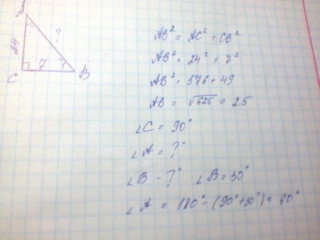 A
?
24
C 7 ? B
AB² = AC² + CB²
AB² = 24² + 7²
AB² = 576 + 49
AB = √625 = 25
∠C = 90°
∠A = ?
∠B - ? ∠B = 30°
∠A = 180° - (90° + 30°) = 60°